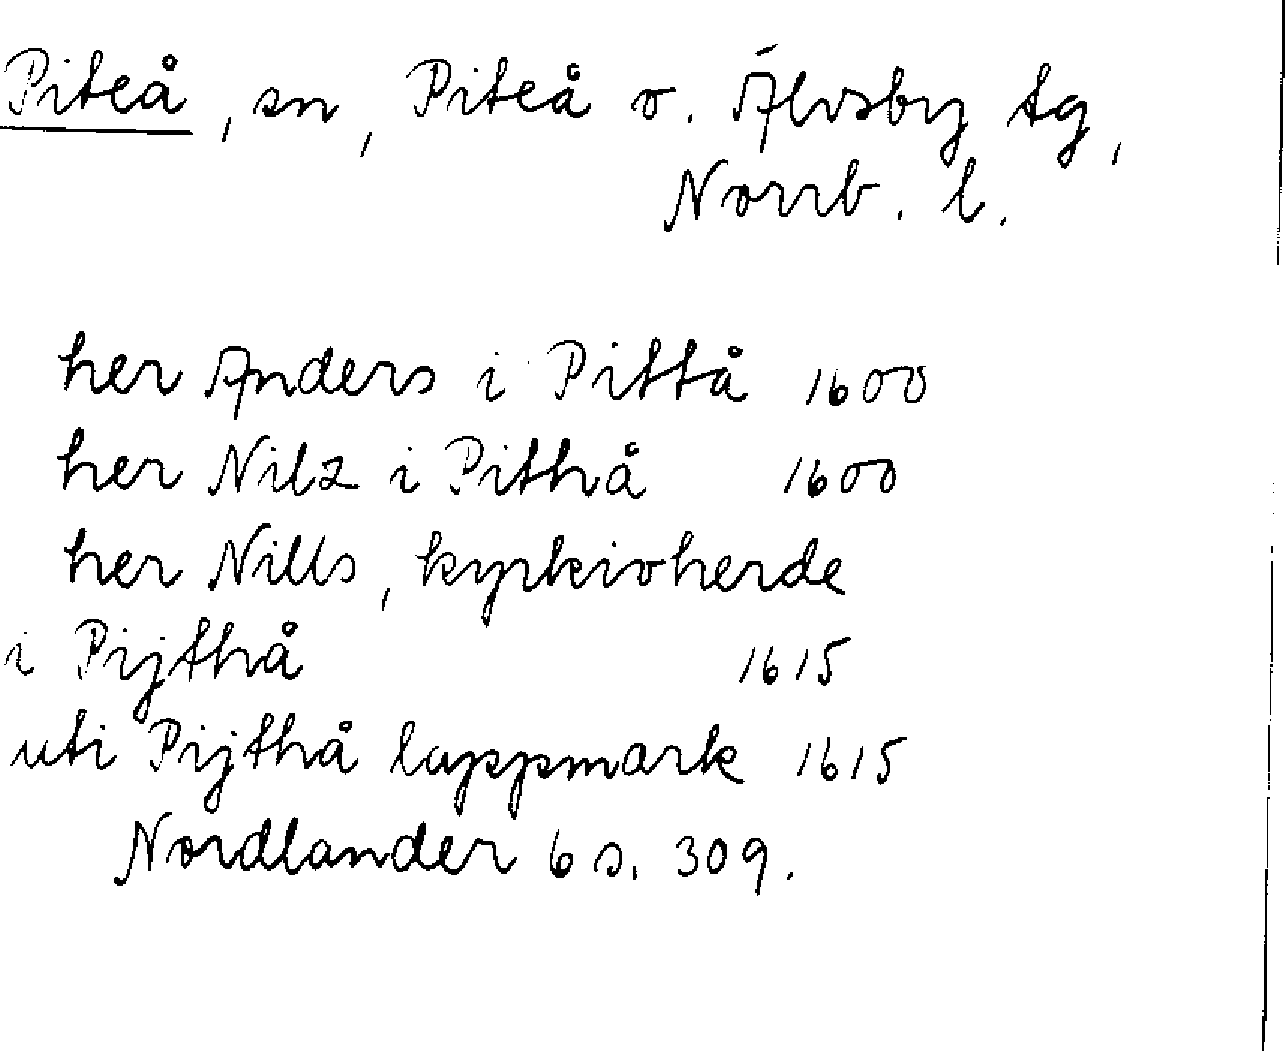 Piteå, sn, Piteå o. Älvsby tg,
Norrb. l.
her Anders i Pittå 1600
her Nilz i Pithå 1600
her Nills, kyrkioherde
i Pijthå 1615
uti Pijthå lappmark 1615
Nordlander 6 s. 309.